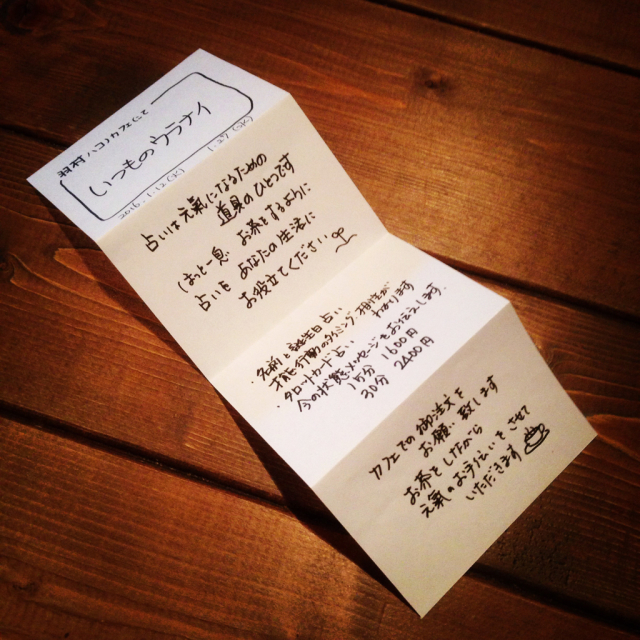 羽村ハコノカフェにて
いつものウラナイ
2016.1.12(火) 1.27(水)
占いは元気になるための
道具のひとつです
ほっと一息 お茶をするように
占いも あなたの生活に
お役立てください
・名前と誕生日占い
わかります
・タロットカード占い
今の状態とメッセージをお伝えします。
15分 1600円
30分 2600円
カフェでの御注文を
お願い致します
お茶をしながら
元気のお手伝いをさせて
いただきます